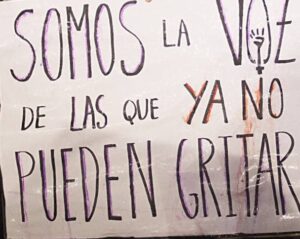 SOMOS LA VOZ
DE LAS QUE YA NO
PUEDEN GRITAR